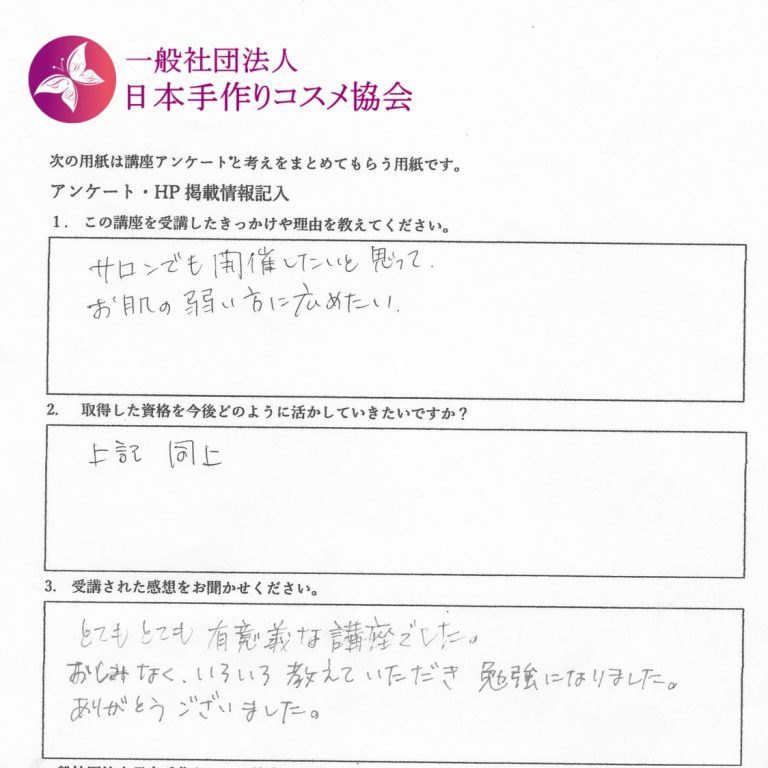 一般社団法人
日本手作りコスメ協会
次の用紙は講座アンケートと考えをまとめてもらう用紙です。
アンケート・HP 掲載情報記入
1. この講座を受講したきっかけや理由を教えてください。
サロンでも開催したいと思って.
お肌の弱い方に広めたい.
2. 取得した資格を今後どのように活かしていきたいですか？
上記 同上
3. 受講された感想をお聞かせください。
とてもとても 有意義な講座でした。
おしみなく、いろいろ教えていただき 勉強になりました。
ありがとうございました。